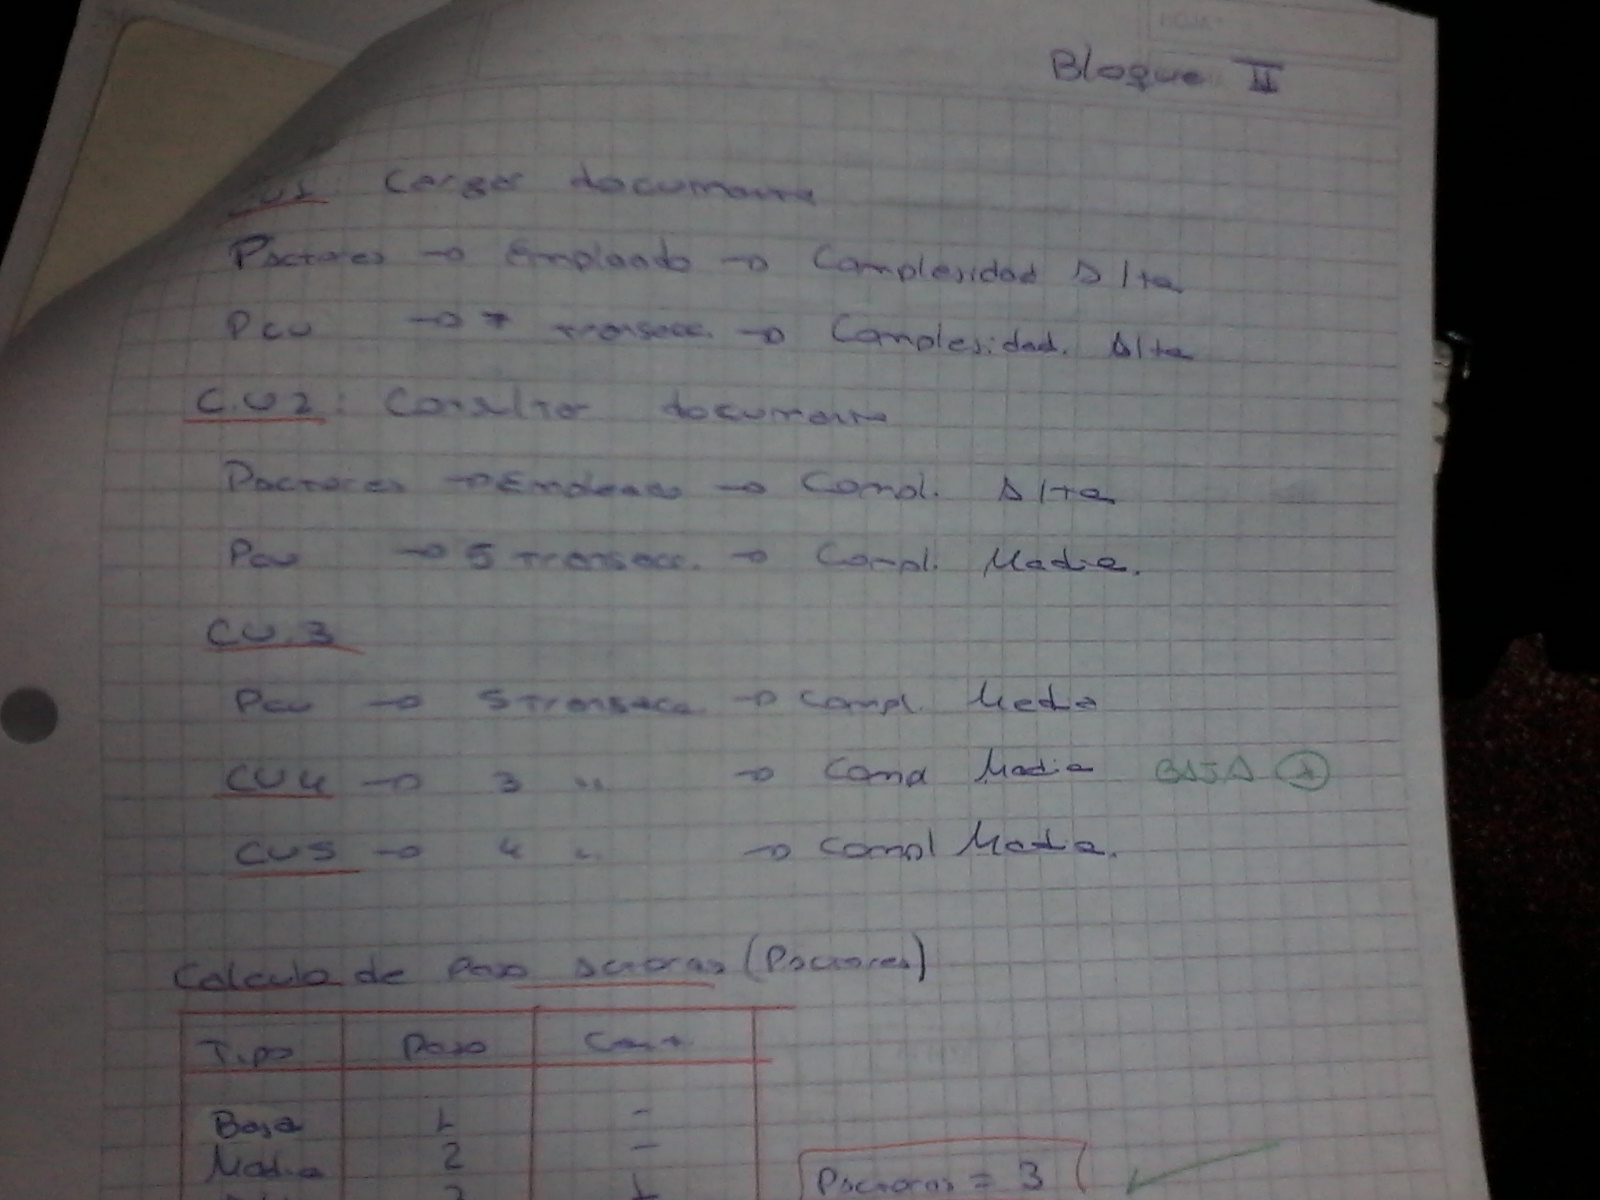 Bloque II
CU1 Cargar documento
Pactores → Empleado → Complejidad Alta
Pcu → 7 transacc. → Complejidad. Alta
C.U2: Consultar documento
Pactores → Empleado → Compl. Alta
Pcu → 5 transacc. → Compl. Media.
CU.3
Pcu → 5 transacc. → Compl. Media
CU4 → 3 " → Comp Media BAJA
CU5 → 4 " → Compl Media.
Calculo de Peso actores (Pactores)
Tipo Peso Cant.
Baja 1 -
Media 2 -
3 1
Pactores = 3